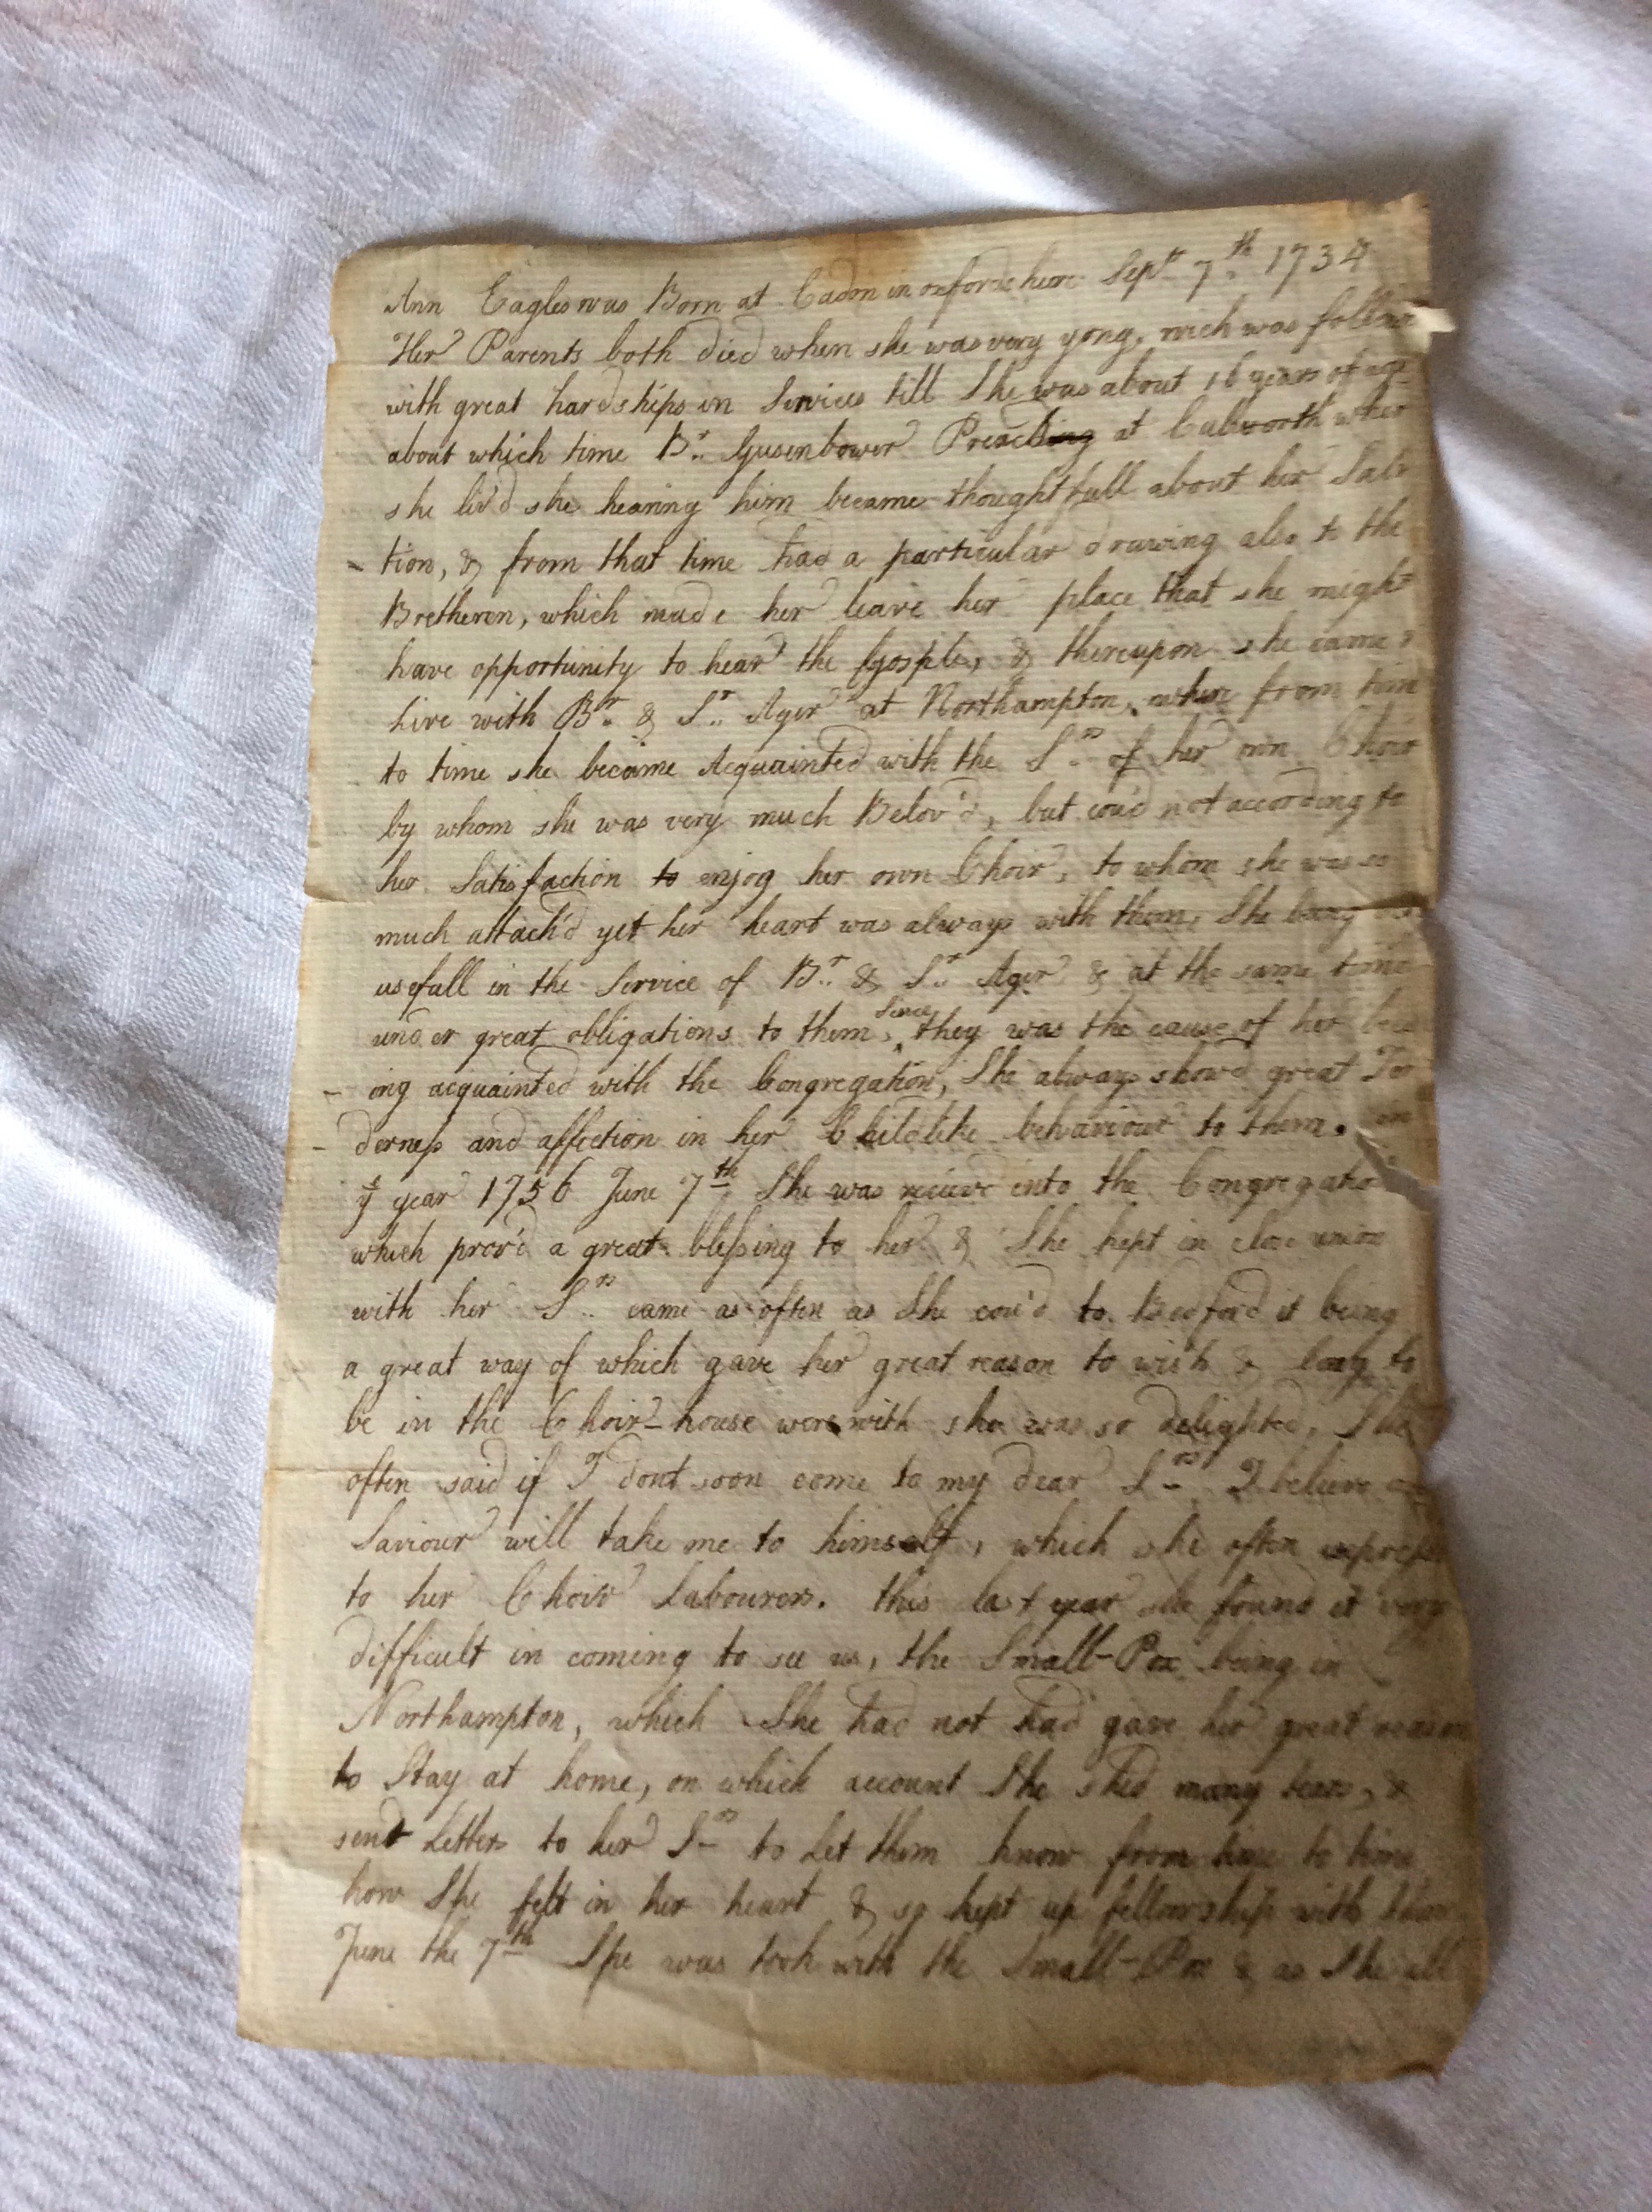 Ann Eagles was Born at Cadon in oxfordsheir Sept 7th 1734
Her Parents both died when she was very yong, wich was
with great hardships in Services till She was about 16 years of age
about which time Br. Gusenbower Preaching at Culworth wher
she liv'd she hearing him became thoughtfull about her Salv
- tion, & from that time had a particular drawing also to the
Bretheren, which made her leave her place that she might
have opportunity to hear the Gosple, & thereupon she came
live with Br. & Sr. Ager at Northampton, where from time
to time she became Acquainted with the Srs. of her own Choir
by whom she was very much Belov'd, but cou'd not according to
her Satisfaction to enjoy her own Choir, to whom she was so
much attach'd yet her heart was always with them, She being
usefull in the Service of Br. & Sr. Ager & at the same time
under great obligations to them, Since they was the cause of her be
- ing acquainted with the Congregation, She always show'd great Ten
- derness and affection in her Childlike behaviour to them. in
ye year 1756 June 7th She was reciev'd into the Congregatio
which prov'd a great blessing to her & She kept in close union
with her Srs. came as often as She cou'd to Bedford it being
a great way of which gave her great reason to wish & long to
be in the Choir-house werewith she was so delighted, She
often said if I dont soon come to my dear Srs. I believe
Saviour will take me to himself, which she often
to her Choir Labourers. this last year she found it very
difficult in coming to see us, the Small-Pox being in
Northampton, which She had not had gave her great reason
to Stay at home, on which account She shed many tears, &
send Letters to her Srs to Let them know from time to time
how She felt in her heart & so kept up fellowship with them
June the 7th She was took with the Small-Pox & as She all